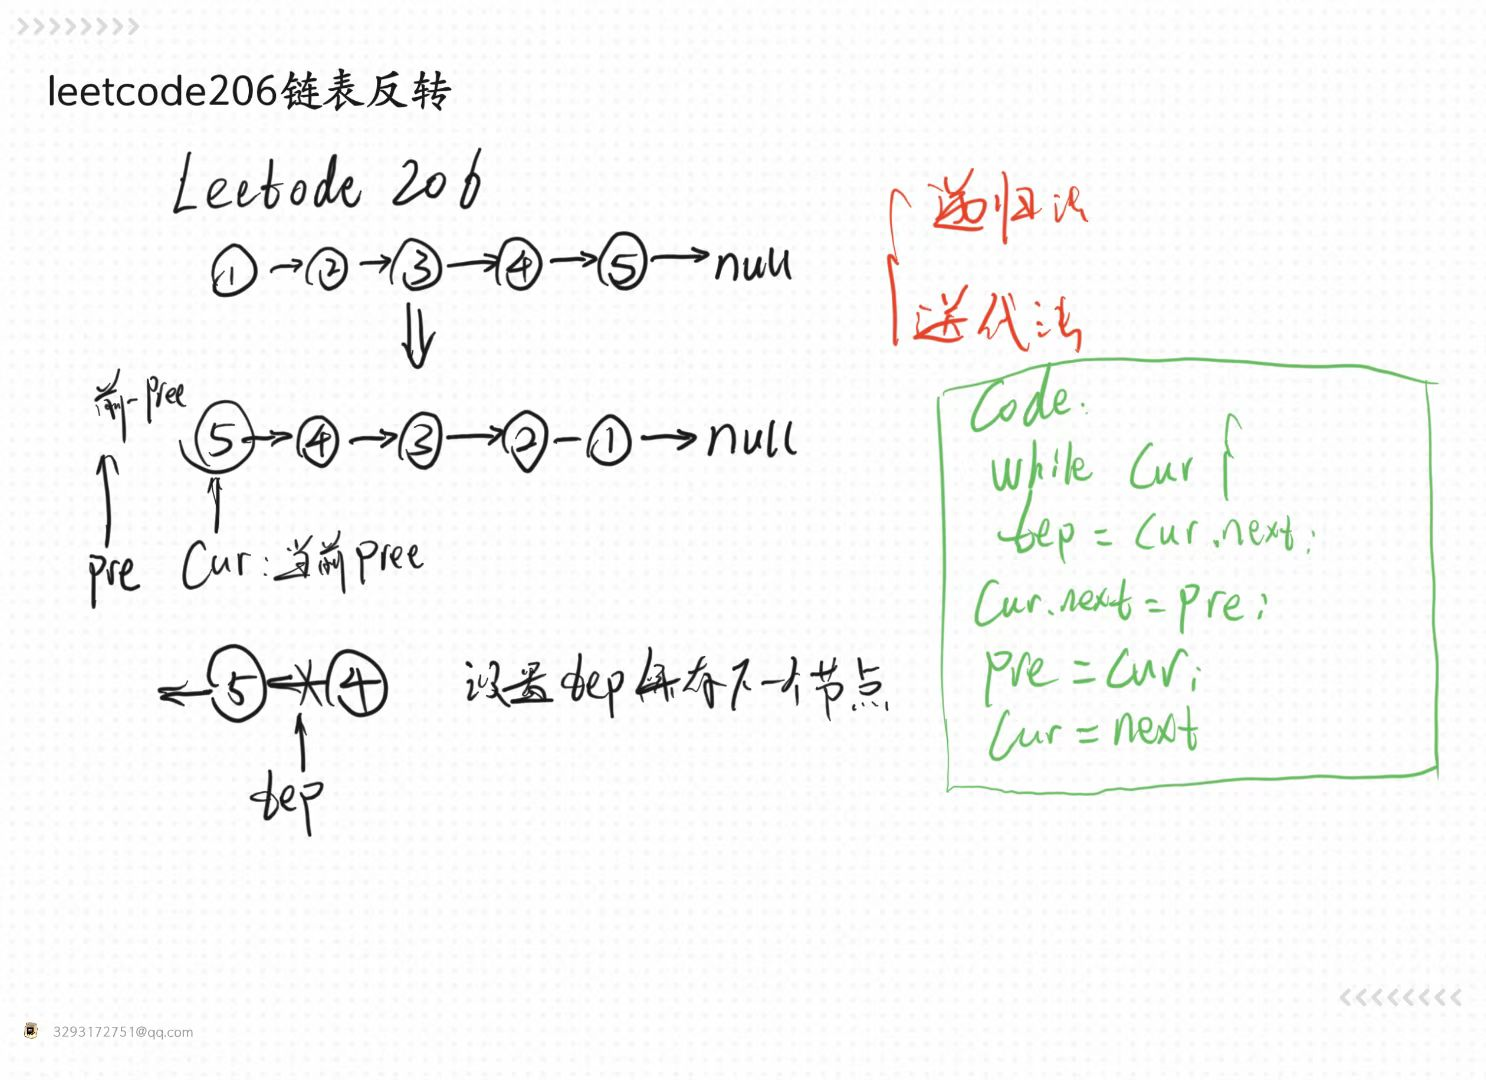 leetcode206链表反转
Leetode 206
① → ② → ③ → ④ → ⑤ → null
⇓
前-pree
⑤ → ④ → ③ → ② - ① → null
pre
Cur:当前pree
⑤ ④
tep
设置tep保存下一个节点
递归法
迭代法
Code.
while Cur {
tep = Cur.next;
Cur.next = pre;
pre = Cur;
Cur = next
3293172751@qq.com